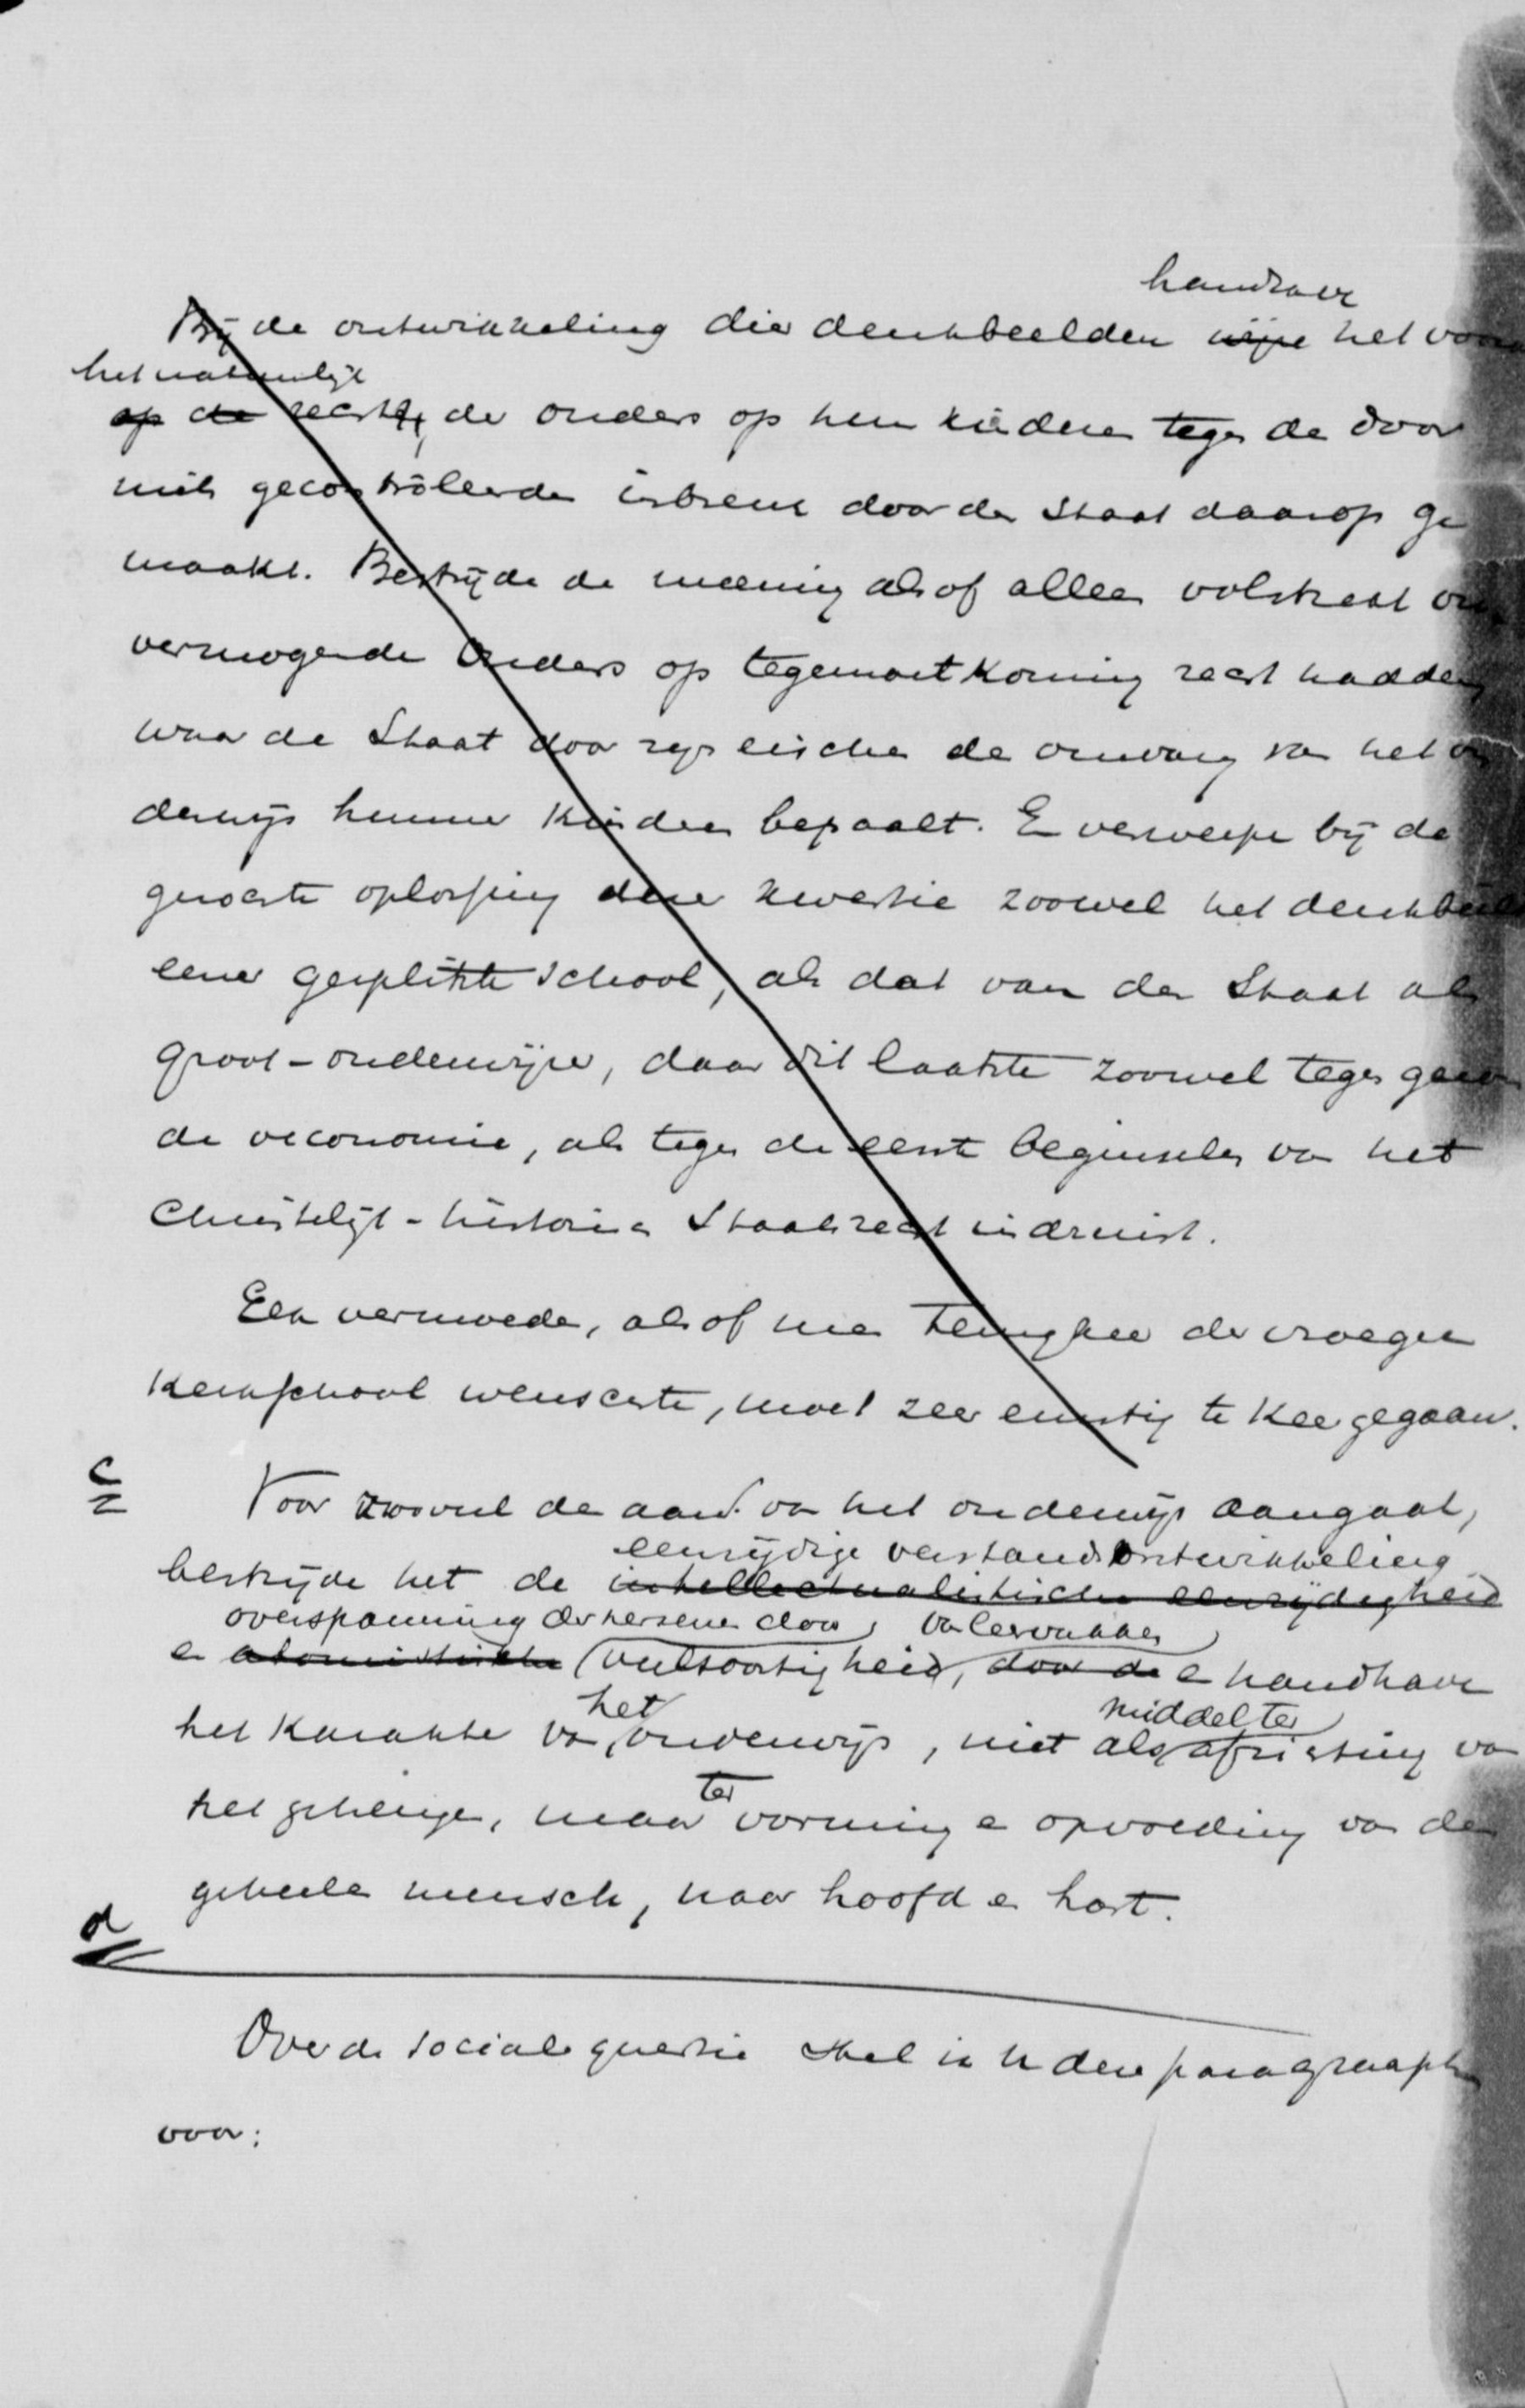 handhave
Bij de ontwikkeling dier denkbeelden wijze het voor
het natuurlijk
op de recht der ouders op hun kinderen tegen de door
niets gecontrôleerde inbreuk door den Staat daarop ge
maakt. Bestrijde de meening alsof alleen volstrekt on
vermogende Ouders op tegemoetkoming recht hadden
waar de Staat door zijn eischen de omvang van het on
derwijs hunner kinderen bepaalt. En verwerpe bij de
gezochte oplossing dezer kwestie zoowel het denkbeeld
eener gesplitste school, als dat van den Staat als
groot-onderwijzer, daar dit laatste zoowel tegen gezon
de oeconomie, als tegen de eerste beginselen van het
Christelijk-historisch Staatsrecht indruist.
Elk vermoeden, alsof men terugkeer der vroegere
kerkschool wenschte, moet zeer ernstig te keer gegaan.
c
Voor zooveel de aard van het onderwijs aangaat,
eenzijdige verstandsontwikkeling
bestrijde het de intellectualistische eenzijdigheid
overspanning der hersenen door van leervakken
en atomistische veelsoortigheid, door de en handhave
het middel ter
het karakter van onderwijs, niet als africhting van
ter
het geheugen, maar vorming en opvoeding van den
geheelen mensch, naar hoofd en hart.
d
Over de sociale questie stel ik U deze paragraaph
voor: